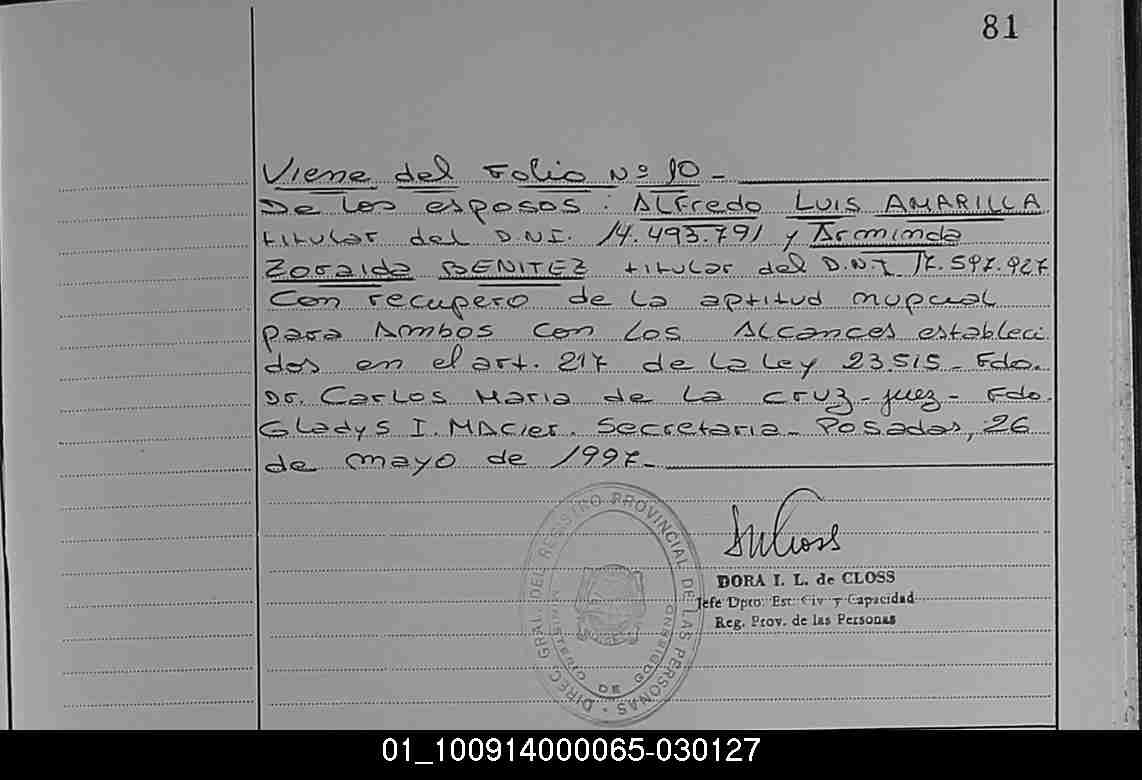 81
Viene del Folio Nº 10 -
De los esposos: Alfredo Luis AMARILLA
titular del D.N.I. 14.493.791 y Arminda
Zoraida BENITEZ titular del D.N.I 17.597.927
Con recupero de la aptitud nupcial
para Ambos con los Alcances estableci
dos en el art. 217 de la Ley 23.515 - Fdo.
Dr. Carlos Maria de La Cruz - juez - Fdo.
Gladys I. MAcier. Secretaria - Posadas, 26
de mayo de 1997 -
DIREC. GRAL. DEL REGISTRO PROVINCIAL DE LAS PERSONAS
MINISTERIO DE GOBIERNO
DORA I. L. de CLOSS
Jefe Dpto. Est. Civ y Capacidad
Reg. Prov. de las Personas
01_100914000065-030127